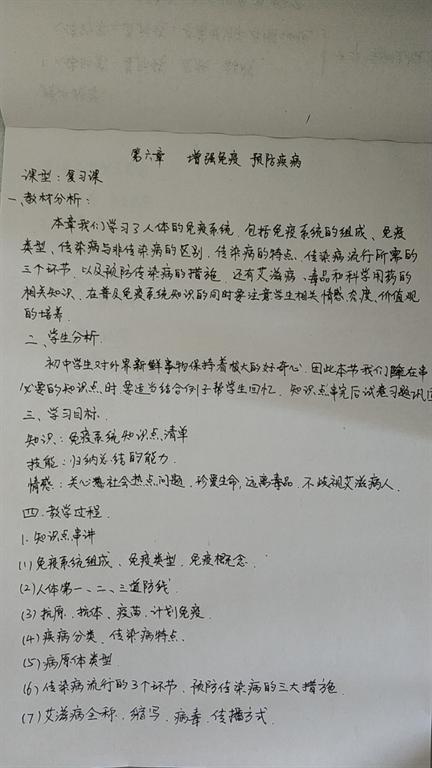 第六章 增强免疫 预防疾病
课型：复习课
一、教材分析：
本章我们学习了人体的免疫系统，包括免疫系统的组成、免疫
类型、传染病与非传染病的区别、传染病的特点、传染病流行所需的
三个环节，以及预防传染病的措施，还有艾滋病、毒品和科学用药的
相关知识，在普及免疫系统知识的同时要注意学生相关情感、态度、价值观
的培养．
二、学生分析．
初中学生对外界新鲜事物保持着很大的好奇心，因此本节我们在串
必要的知识点时，要适当结合例子帮学生回忆．知识点串完后试卷习题巩固
三、学习目标．
知识：免疫系统知识点清单
技能：归纳总结的能力．
情感：关心社会热点问题，珍爱生命，远离毒品．不歧视艾滋病人．
四．教学过程．
1．知识点串讲
(1)免疫系统组成、免疫类型、免疫概念．
(2)人体第一、二、三道防线．
(3)抗原．抗体、疫苗、计划免疫．
(4)疾病分类．传染病特点．
(5)病原体类型．
(6)传染病流行的3个环节．预防传染病的三大措施．
(7)艾滋病全称．缩写．病毒．传播方式．